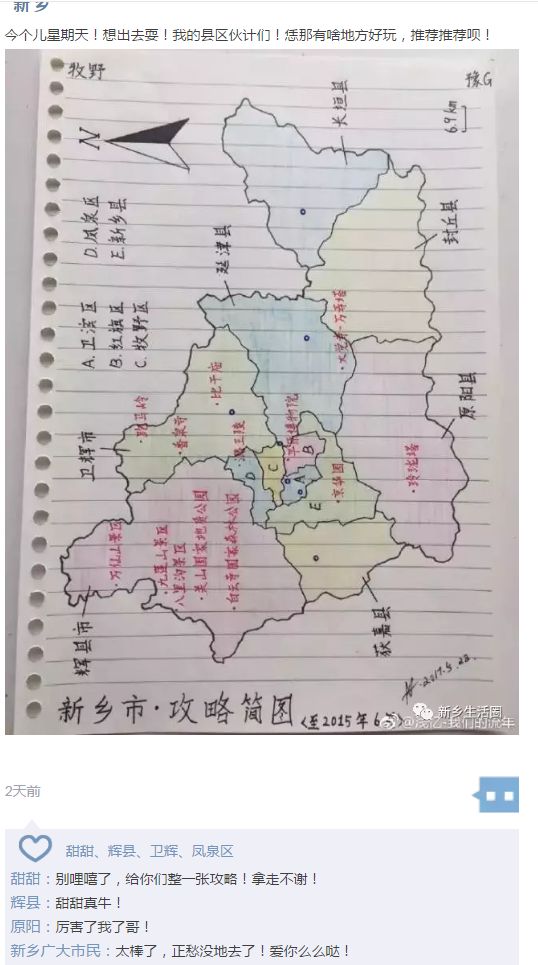 新乡
今个儿星期天！想出去耍！我的县区伙计们！恁那有啥地方好玩，推荐推荐呗！
牧野
豫G
N
6.9km
A.卫滨区
B.红旗区
C.牧野区
D.凤泉区
E.新乡县
长垣县
封丘县
延津县
·大觉寺-万寿塔
原阳县
·玲珑塔
卫辉市
·跑马岭
·香泉寺
·比干庙
·潞王陵
·平原博物院
A
B
C
D
E
·京华园
获嘉县
辉县市
·万仙山景区
·九莲山景区
八里沟景区
·关山国家地质公园
·白云寺国家森林公园
新乡市·攻略简图
<至2015年6月>
2017.5.28.
新乡生活圈
@浅忆-我们的流年
2天前
甜甜、辉县、卫辉、凤泉区
甜甜：别哩嘻了，给你们整一张攻略！拿走不谢！
辉县：甜甜真牛！
原阳：厉害了我了哥！
新乡广大市民：太棒了，正愁没地去了！爱你么么哒！